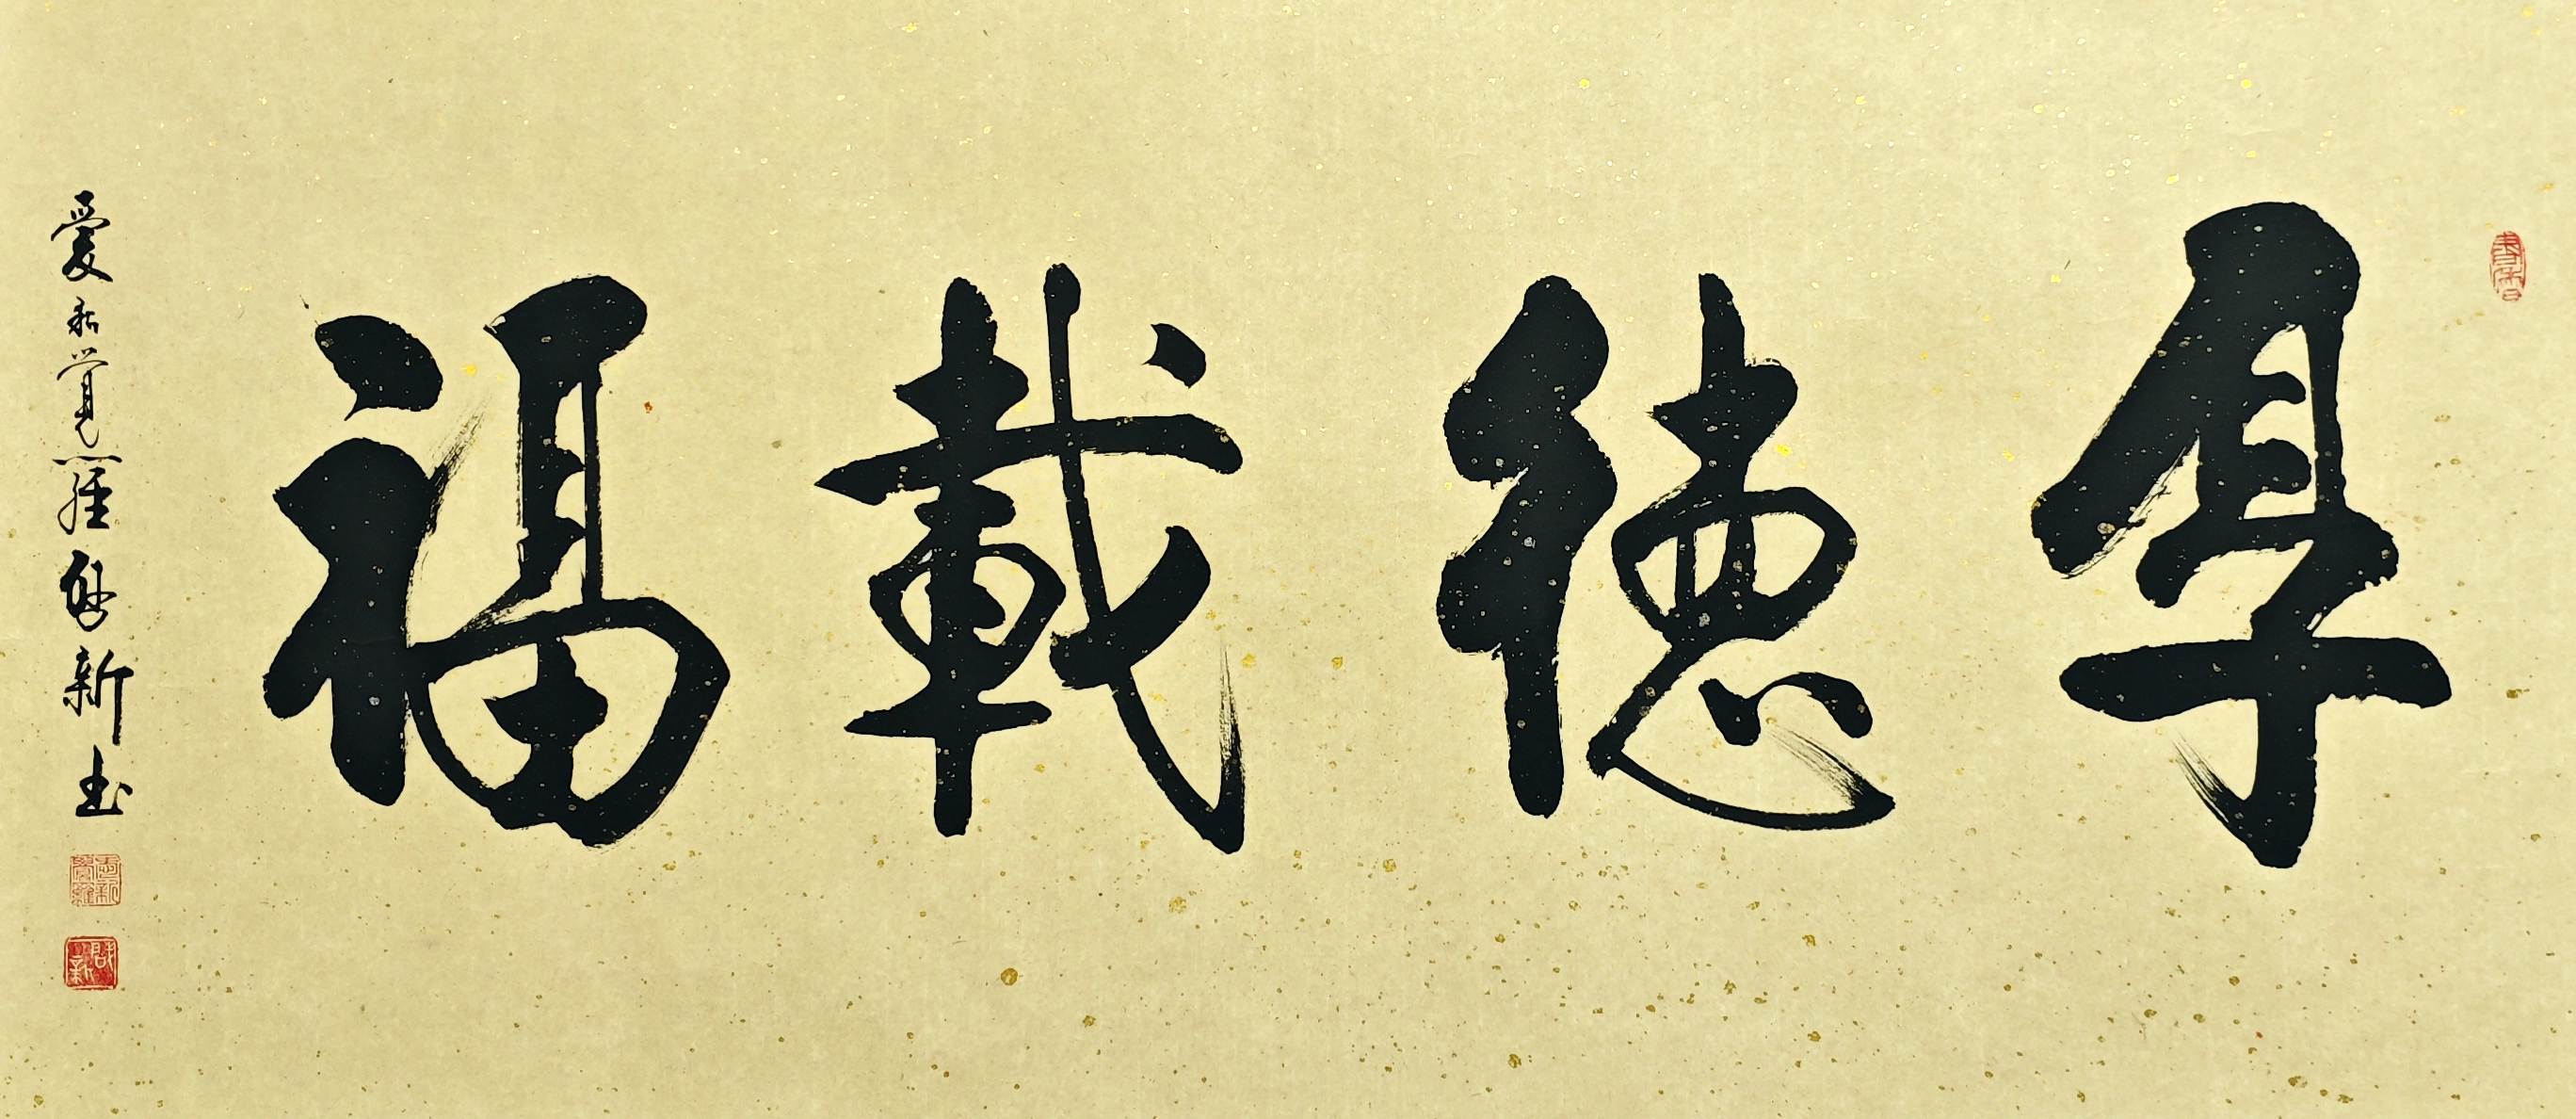 厚德載福
愛新覺羅 新書